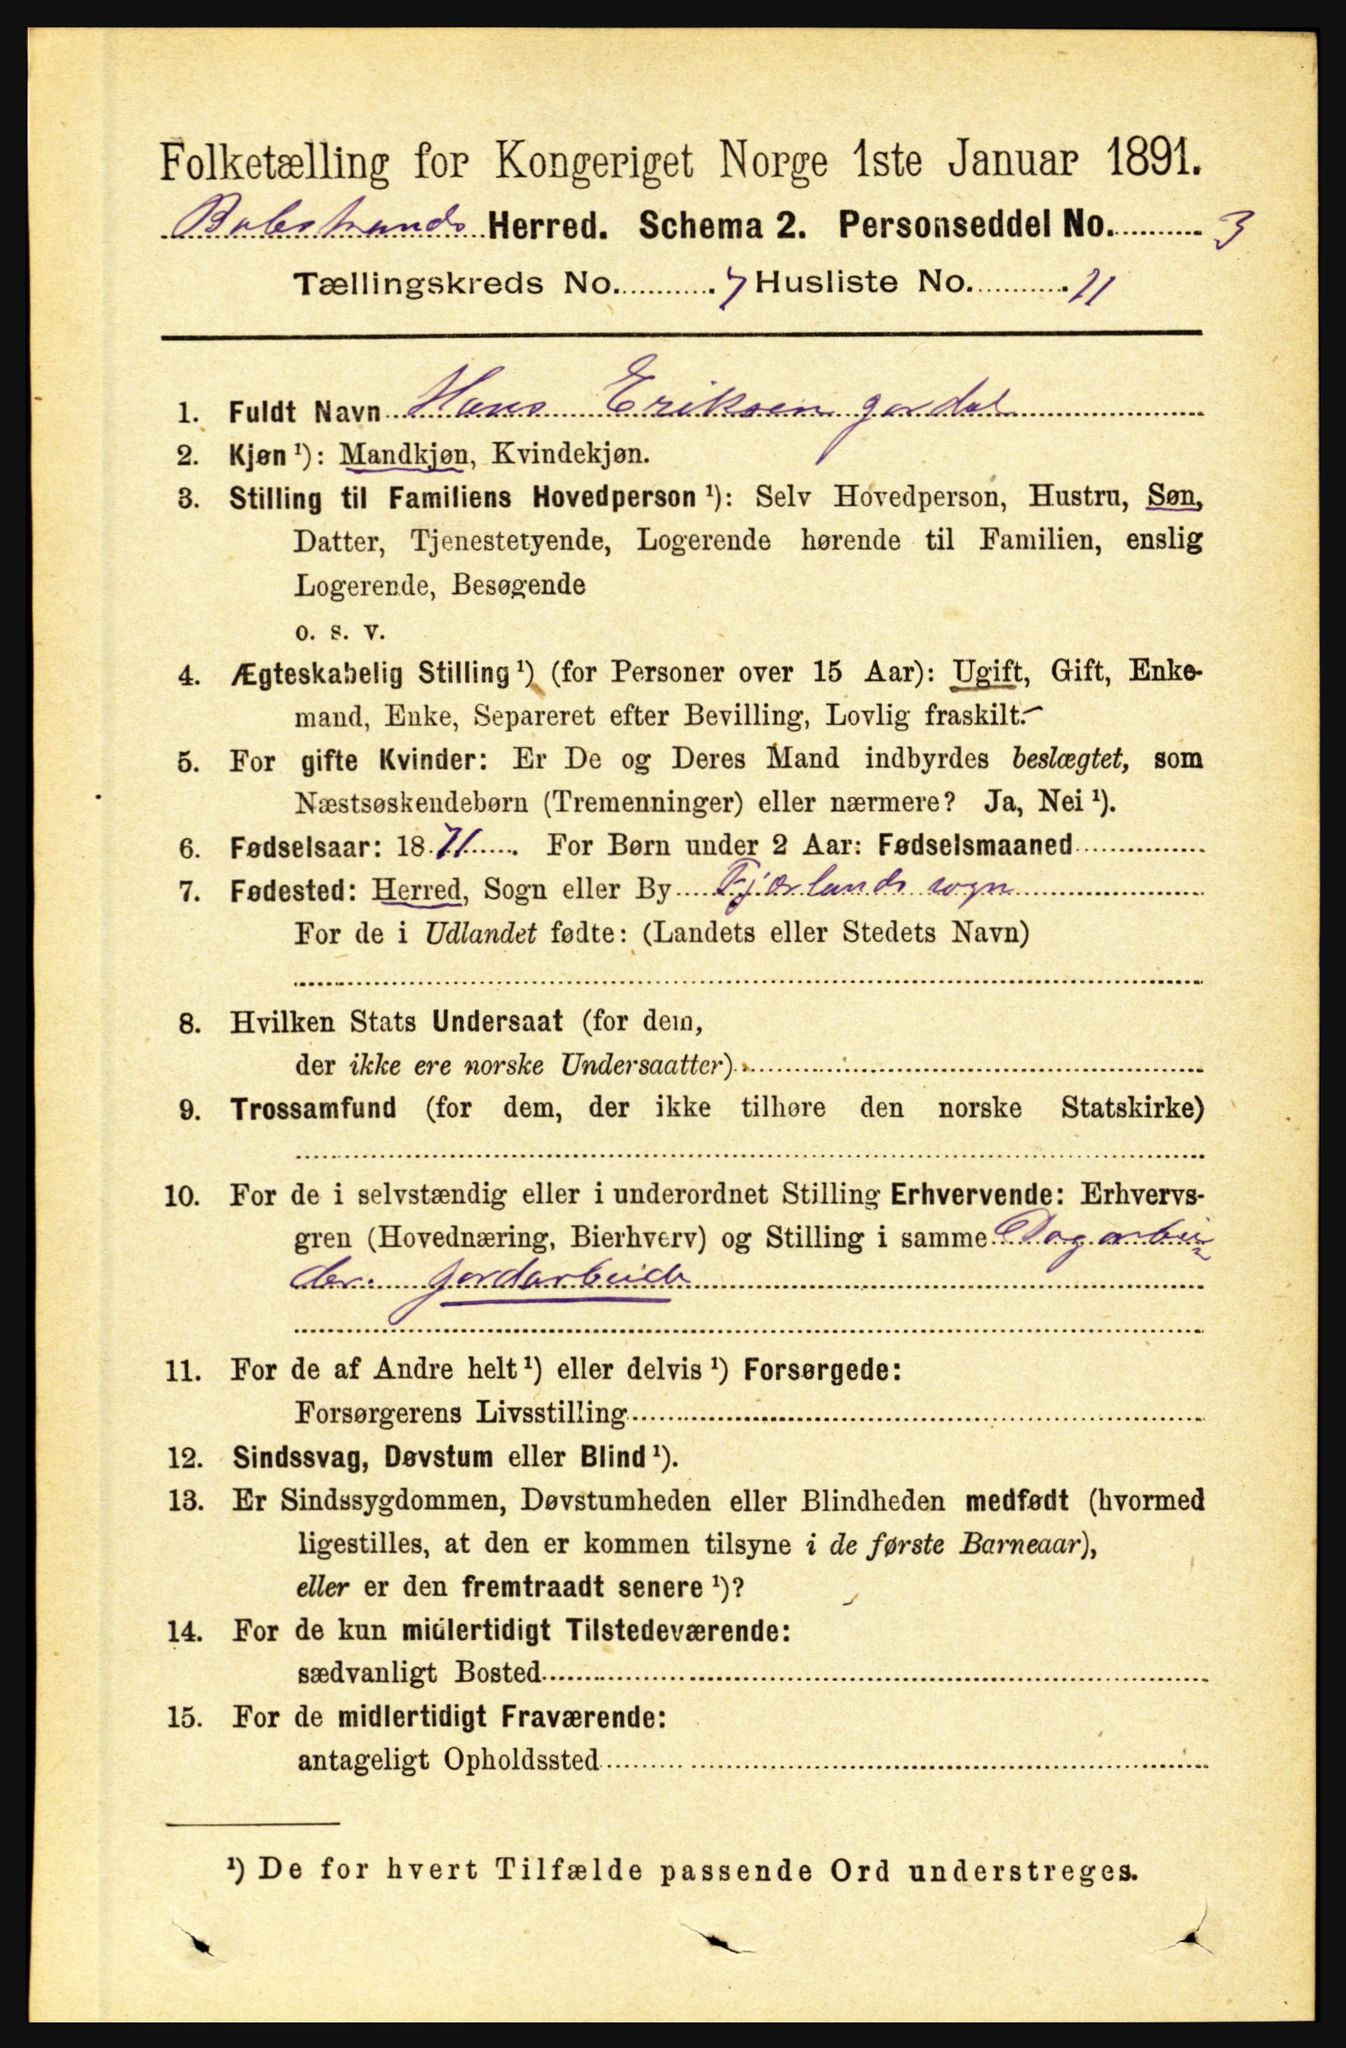 Folketælling for Kongeriget Norge 1ste Januar 1891.
Balestrands Herred. Schema 2. Personseddel No. 3
Tællingskreds No. 7 Husliste No. 11
1. Fuldt Navn Hans Eriksen Jordal
2. Kjøn ¹): Mandkjøn, Kvindekjøn.
3. Stilling til Familiens Hovedperson ¹): Selv Hovedperson, Hustru, Søn,
Datter, Tjenestetyende, Logerende hørende til Familien, enslig
Logerende, Besøgende
o. s. v.
4. Ægteskabelig Stilling ¹) (for Personer over 15 Aar): Ugift, Gift, Enke-
mand, Enke, Separeret efter Bevilling, Lovlig fraskilt.
5. For gifte Kvinder: Er De og Deres Mand indbyrdes beslægtet, som
Næstsøskendebørn (Tremenninger) eller nærmere? Ja, Nei ¹).
6. Fødselsaar: 1871. For Børn under 2 Aar: Fødselsmaaned
7. Fødested: Herred, Sogn eller By Fjærlands sogn
For de i Udlandet fødte: (Landets eller Stedets Navn)
8. Hvilken Stats Undersaat (for dem,
der ikke ere norske Undersaatter)
9. Trossamfund (for dem, der ikke tilhøre den norske Statskirke)
10. For de i selvstændig eller i underordnet Stilling Erhvervende: Erhvervs-
gren (Hovednæring, Bierhverv) og Stilling i samme Dagarbei-
der. jordarbeide
11. For de af Andre helt ¹) eller delvis ¹) Forsørgede:
Forsørgerens Livsstilling
12. Sindssvag, Døvstum eller Blind ¹).
13. Er Sindssygdommen, Døvstumheden eller Blindheden medfødt (hvormed
ligestilles, at den er kommen tilsyne i de første Barneaar),
eller er den fremtraadt senere ¹)?
14. For de kun midlertidigt Tilstedeværende:
sædvanligt Bosted
15. For de midlertidigt Fraværende:
antageligt Opholdssted
¹) De for hvert Tilfælde passende Ord understreges.